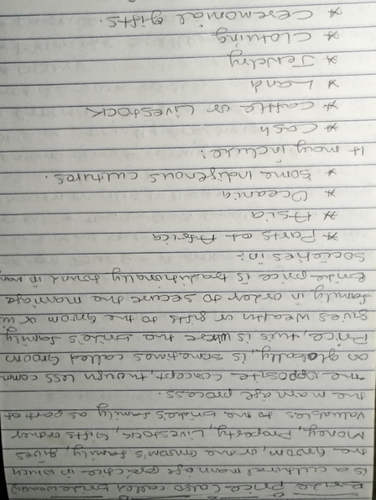 Bride price (also called bridewealth)
is a cultural marriage practice in which
the groom, or the groom's family, gives
Money, Property, Livestock, Gifts or other
valuables to the bride's family as part of
the marriage process.
The opposite concept, though less comm
on globally, is sometimes called Groom
Price, this is where the bride's family
gives wealth or gifts to the groom or
family in order to secure the marriage.
Bride price is traditionally found in
societies in:
* Parts of Africa
* Asia
* Oceania
* Some Indigenous cultures.
It may include:
* Cash
* Cattle or Livestock
* Land
* Jewelry
* Clothing
* Ceremonial gifts.